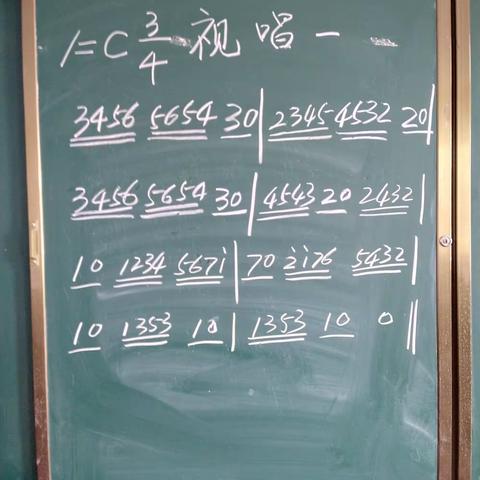 1=C 3/4 视唱一
3456 5654 30 | 2345 4532 20 |
3456 5654 30 | 4543 20 2432 |
10 1234 567i | 70 i̇i76 5432 |
10 1353 10 | 1353 10 0 ||